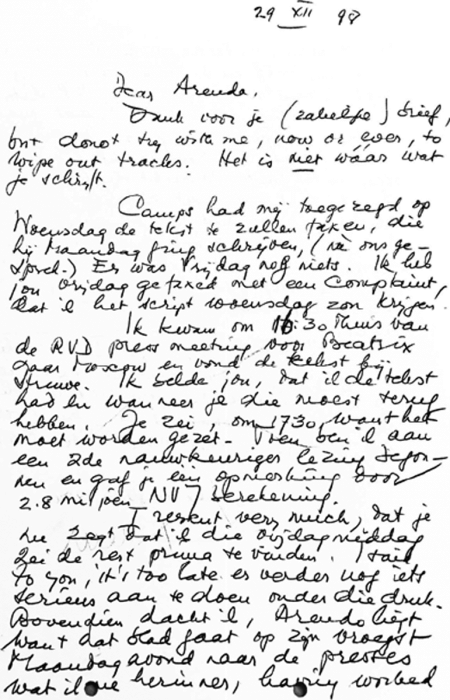 29 XII 98
Dear Arendo,
Dank voor je (zakelijke) brief,
but donot try with me, now or ever, to
wipe out tracks. Het is niet wáár wat
je schrijft.
Camps had mij toegezegd op
Woensdag de tekst te zullen faxen, die
hij Maandag ging schrijven, (na ons ge-
sprek.) Er was Vrijdag nog niets. Ik heb
jou vrijdag gefaxed met een complaint,
dat ik het script woensdag zou krijgen.
Ik kwam om 16.30 thuis van
de RVD press meeting voor Beatrix
naar Moscow en vond de tekst bij
. Ik belde jou, dat ik de tekst
had en wanneer je die moest terug
hebben. Je zei, om 1730, want het
moet worden gezet. Toen ben ik aan
een 2de nauwkeuriger lezing begon-
nen en gaf je één opmerking door
2.8 miljoen NVJ berekening.
I resent very much, dat je
nu zegt dat ik die vrijdagmiddag
zei de rest prima te vinden. I said
to you, it's too late er verder nog iets
serieus aan te doen onder die druk.
Bovendien dacht ik, Arendo liegt
want dat blad gaat op zijn vroegst
Maandagavond naar de presses
wat ik me herinner, having worked